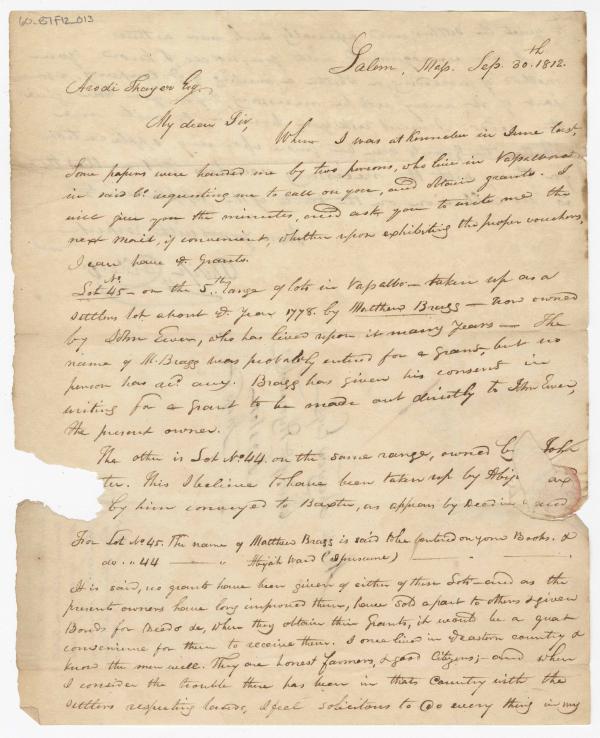 60-87F12_013
Salem, Mass. Sep. 30.th 1812.
Arodi Thayer Esq.
My dear Sir,
When I was at Kennebec in June last,
Some papers were handed me by two persons, who live in Vassalboro
in said Co. requesting me to call on you, and obtain grants. I
will give you the minutes, and ask you to write me the
next mail, if convenient, whether upon exhibiting the proper vouchers,
I can have ye Grants.
No.
Lot 45 - on the 5.th range of lots in Vassalbo - taken up as a
settlers lot about ye Year 1778. by Matthew Bragg - now owned
by John Ewer, who has lived upon it many Years - The
name of M. Bragg was probably entered for a grant, but no
person has recd any. Bragg has given his consent in
writing for a grant to be made out directly to John Ewer,
the present owner.
The other is Lot No. 44. on the same range, owned b John
ter. This I believe to have been taken up by Abij
by him conveyed to Baxter, as appears by Deed
For Lot No 45. The name of Matthew Bragg is said to be entered on your Books. &
do. " 44 — " Abijah Ward (I presume) — " —
It is said, no grants have been given of either of these Lots - and as the
present owners have long improved them, have sold a part to others & given
Bonds for Deeds &c, when they obtain their Grants, it would be a great
convenience for them to receive them. I once lived in ye eastern country &
know the men well. They are honest farmers, & good Citizens; - and when
I consider the trouble there has been in that Country with the
settlers respecting lands, I feel solicitous to do every thing in my